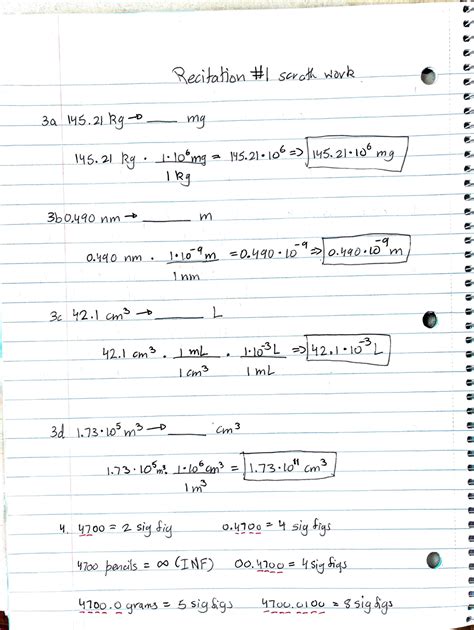 Recitation #1 scrath work
3a 145.21 kg → ____ mg
145.21 kg · 1·10⁶mg / 1 kg = 145.21·10⁶ => 145.21·10⁶ mg
3b 0.490 nm → ____ m
0.490 nm · 1·10⁻⁹ m / 1 nm = 0.490·10⁻⁹ => 0.490·10⁻⁹ m
3c 42.1 cm³ → ____ L
42.1 cm³ · 1 mL / 1 cm³ · 1·10⁻³ L / 1 mL => 42.1·10⁻³ L
3d 1.73·10⁵ m³ → ____ cm³
1.73·10⁵m³ · 1·10⁶cm³ / 1 m³ = 1.73·10¹¹ cm³
4. 4700 = 2 sig fig 0.4700 = 4 sig figs
4700 pencils = ∞ (INF) 00.4700 = 4 sig figs
4700.0 grams = 5 sig figs 4700.0100 = 8 sig figs